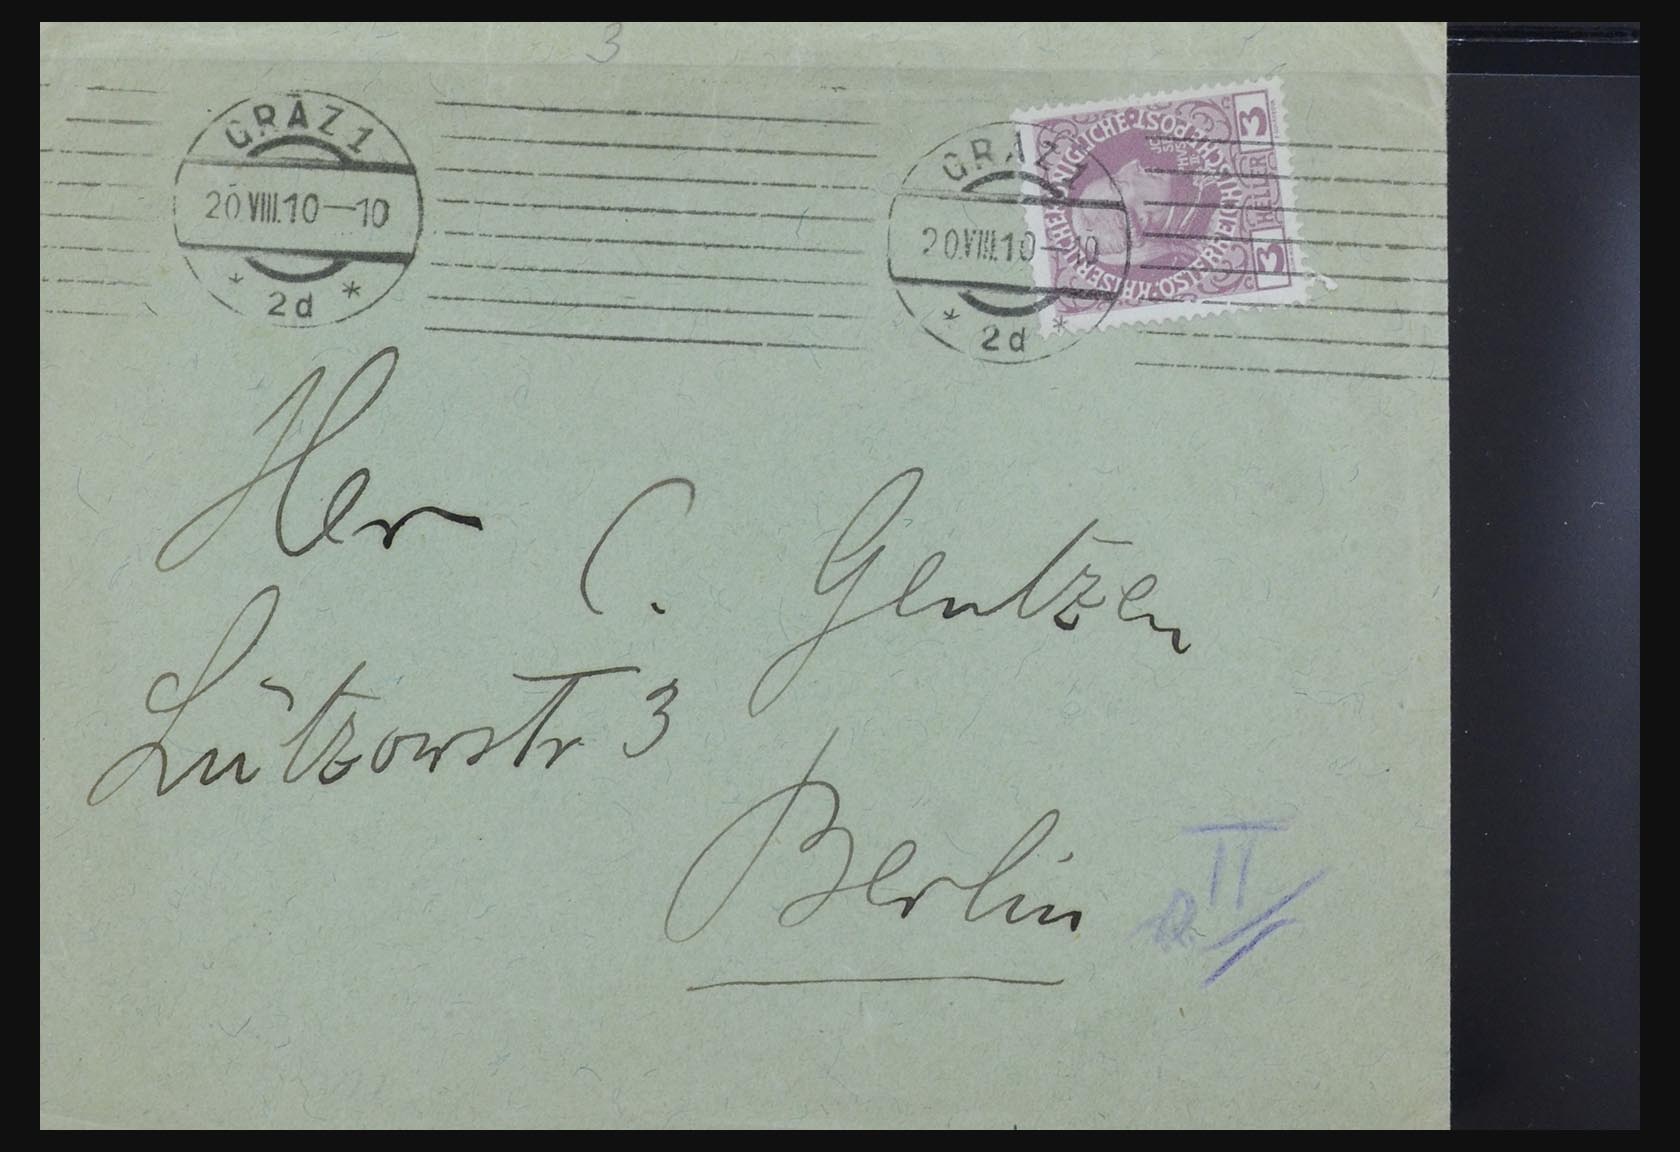 3
GRAZ 1
20.VIII.10—10
* 2d *
GRAZ 1
20.VIII.10—10
* 2d *
KAISERLICHE KÖNIGLICHE · POST
ÖSTERREICHISCHE
3 HELLER 3
Herr C. Gentzen
Lützowstr 3
Berlin
II